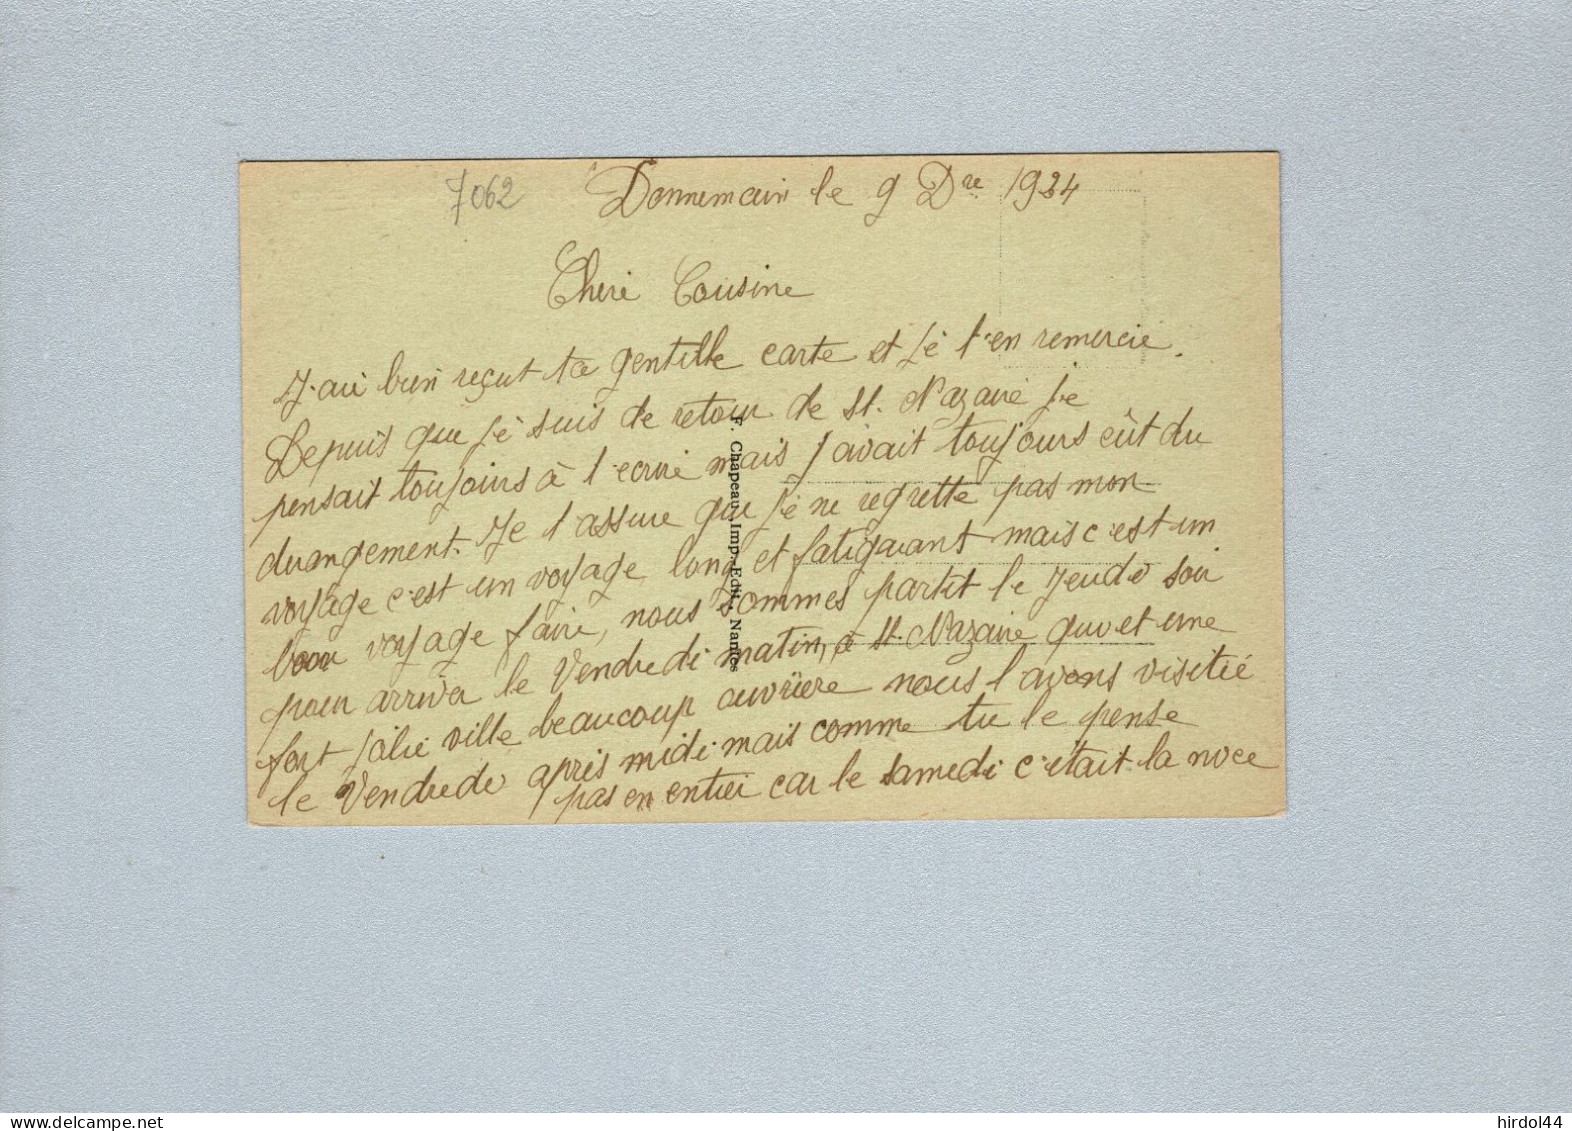 7062
Donnemain le 9 Dre 1934
Cheré Cousine
J'ai bien reçut ta gentille carte et je t'en remercie.
Depuis que je suis de retour de St. Nazaire je
pensait toujours à t'ecrire mais j'avait toujours eût du
durangement. Je t'assure que je ne regrette pas mon
voyage c'est un voyage long et fatiguant mais c'est un
beau voyage faire, nous sommes partit le Jeude soir
pour arriver le Vendredi matin, à St. Nazaire qui et une
fort jolie ville beaucoup ouvrière nous l'avons visitié
le Vendrede après midi mais comme tu le pense
pas en entier car le samedi c'était la noce
F. Chapeau, Imp. Edit., Nantes
hirdol44